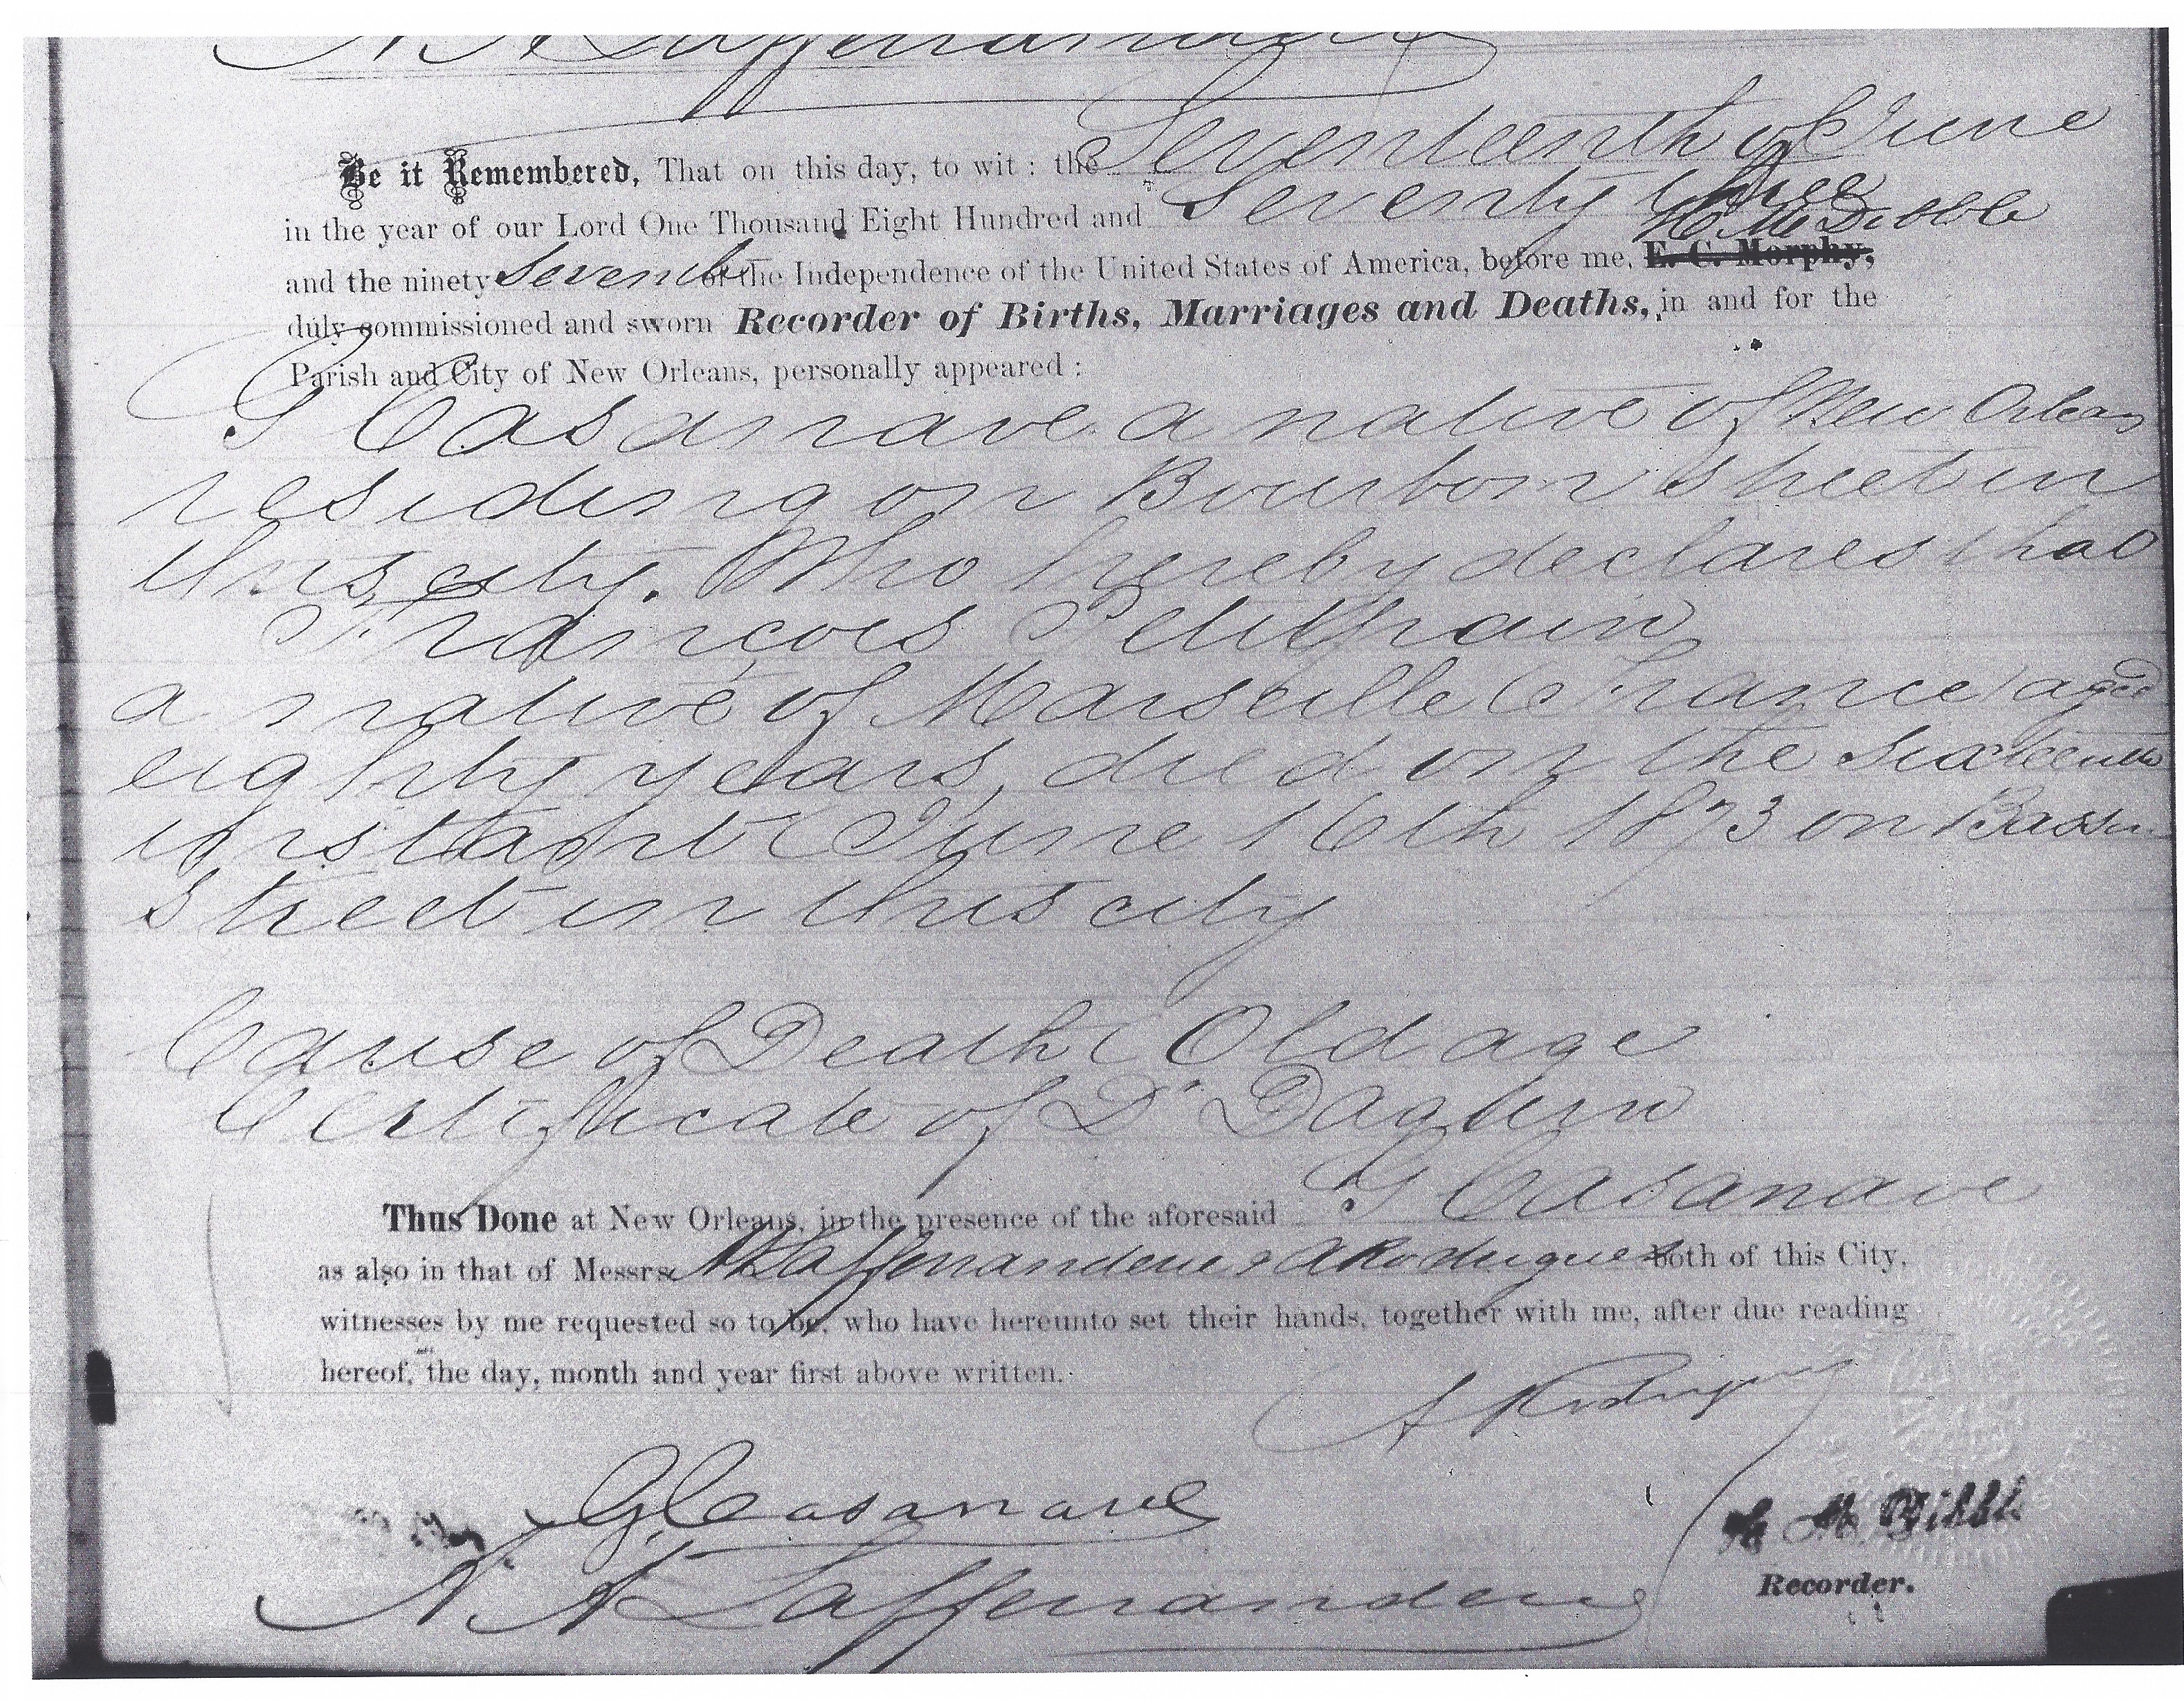 Be it Remembered, That on this day, to wit : the Seventeenth of June
in the year of our Lord One Thousand Eight Hundred and Seventy three
H M Dibble
and the ninety Seventh of the Independence of the United States of America, before me, E. C. Morphy,
duly commissioned and sworn Recorder of Births, Marriages and Deaths, in and for the
Parish and City of New Orleans, personally appeared :
G Casanave a native of New Orleans
residing on Bourbon street in
this city. Who hereby declares that
François Petitpain
a native of Marseille (France) aged
eighty years, died on the sixteenth
instant (June 16th 1873 on Bassin
street in this city
Cause of Death (Old age
Certificate of Dr
G Casanave
Thus Done at New Orleans, in the presence of the aforesaid
as also in that of Messrs N A Lafferranderie & A Rodrigues both of this City,
witnesses by me requested so to be, who have hereunto set their hands, together with me, after due reading
hereof, the day, month and year first above written.
A Rodrigues
G Casanave
H M Dibble
Recorder.